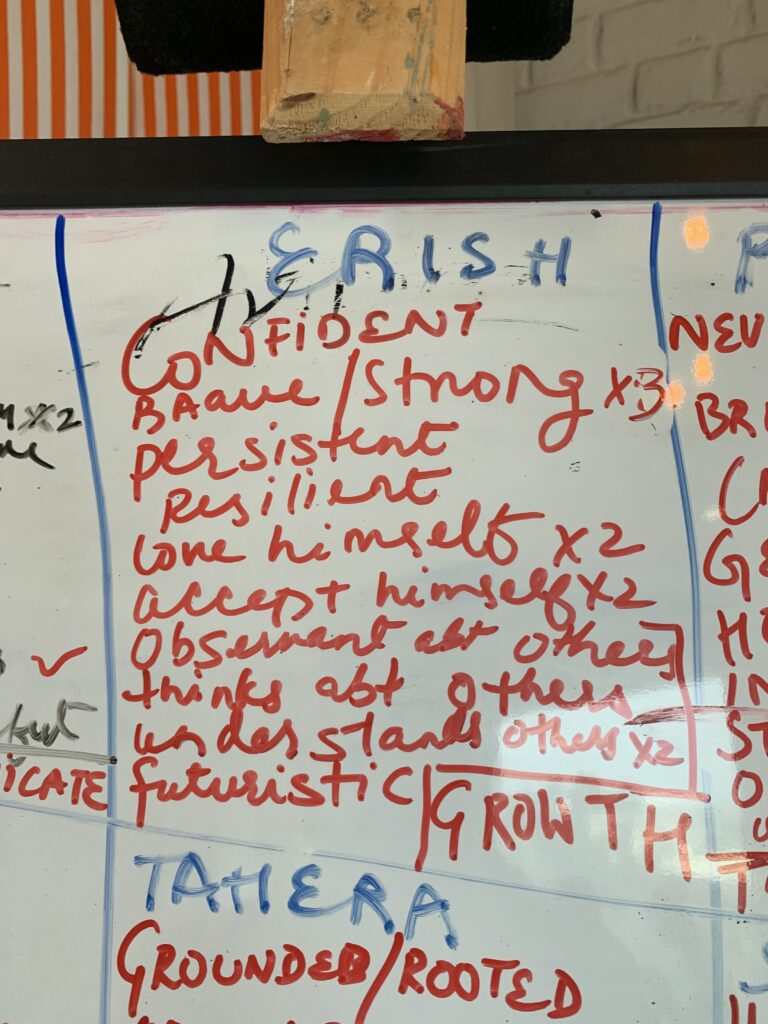 ERISH
CONFIDENT
BRAVE/Strong x3
persistent
Resilient
love himself x2
accept himself x2
Observant abt others
thinks abt others
understands others x2
futuristic/GROWTH
TAHERA
GROUNDED/ROOTED
x2
ICATE
NEU
BR
GE
H
IN
ST
O